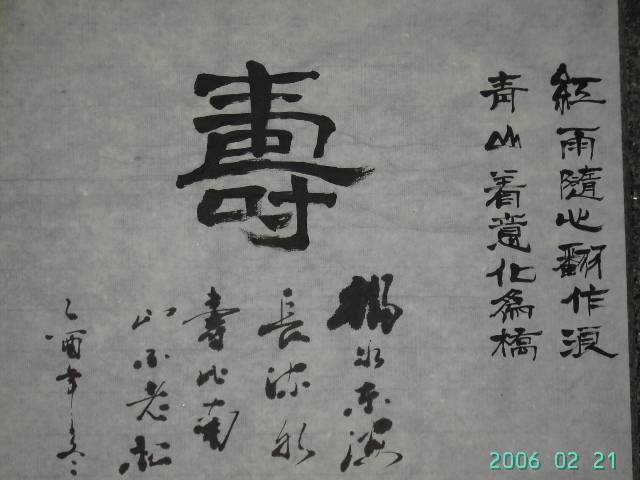 紅雨隨心翻作浪
青山着意化為橋
壽
福如东海
長流水
壽比南
山不老松
乙酉年冬
2006 02 21